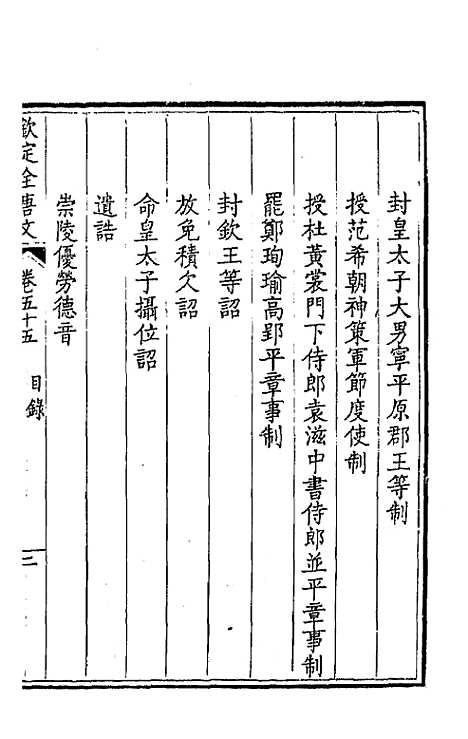 封皇太子大男寧平原郡王等制
授范希朝神策軍節度使制
授杜黃裳門下侍郎袁滋中書侍郎並平章事制
罷鄭珣瑜高郢平章事制
封欽王等詔
放免積欠詔
命皇太子攝位詔
遺誥
崇陵優勞德音
欽定全唐文 卷五十五 目錄 二